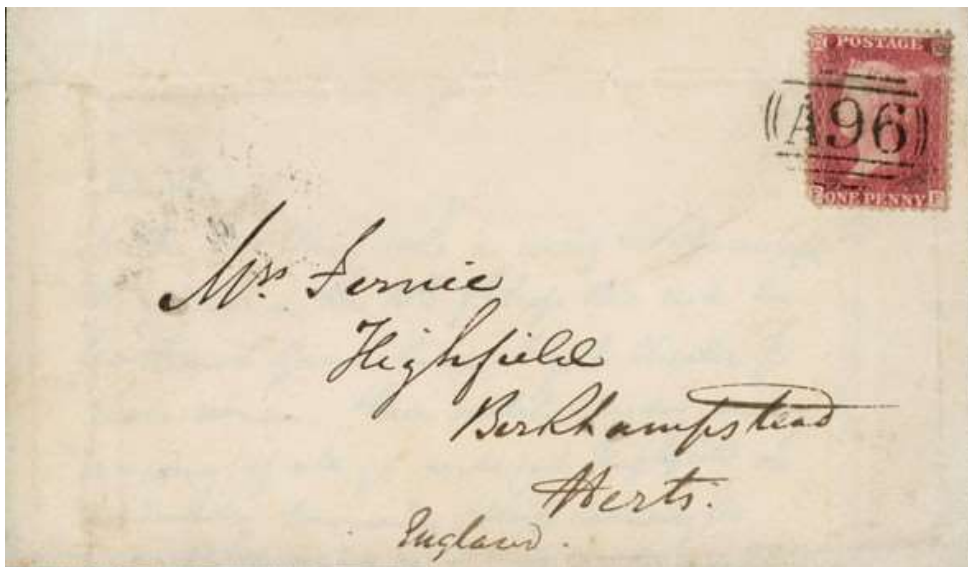 POSTAGE
A96
ONE PENNY
Mrs Fernie
Highfield
Berkhampstead
Herts.
England.